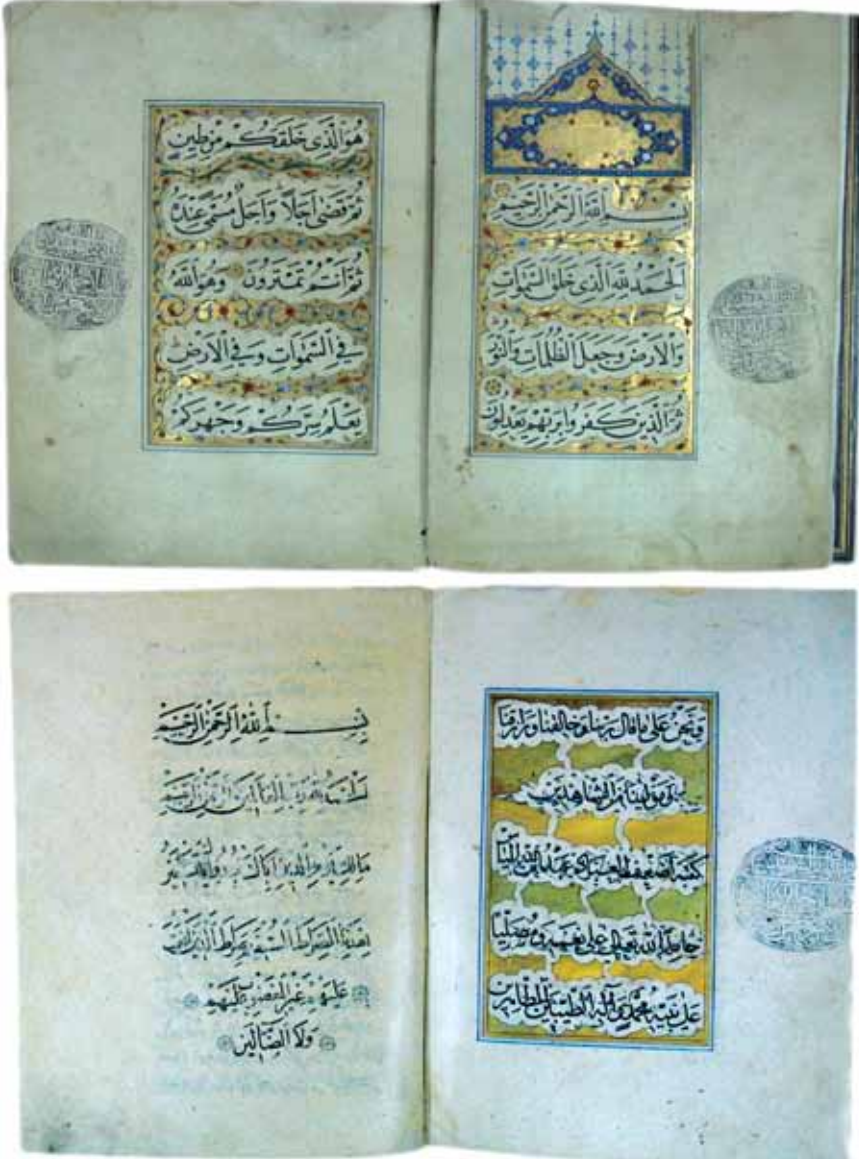 بسم الله الرحمن الرحيم
الحمد لله الذي خلق السموات
والارض وجعل الظلمات والنور
ثم الذين كفروا بربهم يعدلون
هُوَ الَّذى خَلَقَكُمْ مِنْ طينٍ
ثُمَّ قَضى اَجَلاً وَاَجَلٌ مُسَمًّى عِنْدَهُ
ثُمَّ اَنْتُمْ تَمْتَرُونَ وَهُوَ اللهُ
فِى السَّمٰوَاتِ وَفِى الْاَرْضِ
يَعْلَمُ سِرَّكُمْ وَجَهْرَكُمْ
ونحن على ما قال ربنا وخالقنا ورازقنا
ومولينا من الشاهدين
كتبه اضعف عبد الله
حامدا لله تعالى على نعمه ومصليا
على نبيه محمد وآله الطيبين الطاهرين
بسم الله الرحمن الرحيم
الحمد لله رب العالمين الرحمن الرحيم
مالك يوم الدين اياك نعبد واياك نستعين
اهدنا الصراط المستقيم صراط الذين انعمت
عليهم غير المغضوب عليهم
ولا الضالين